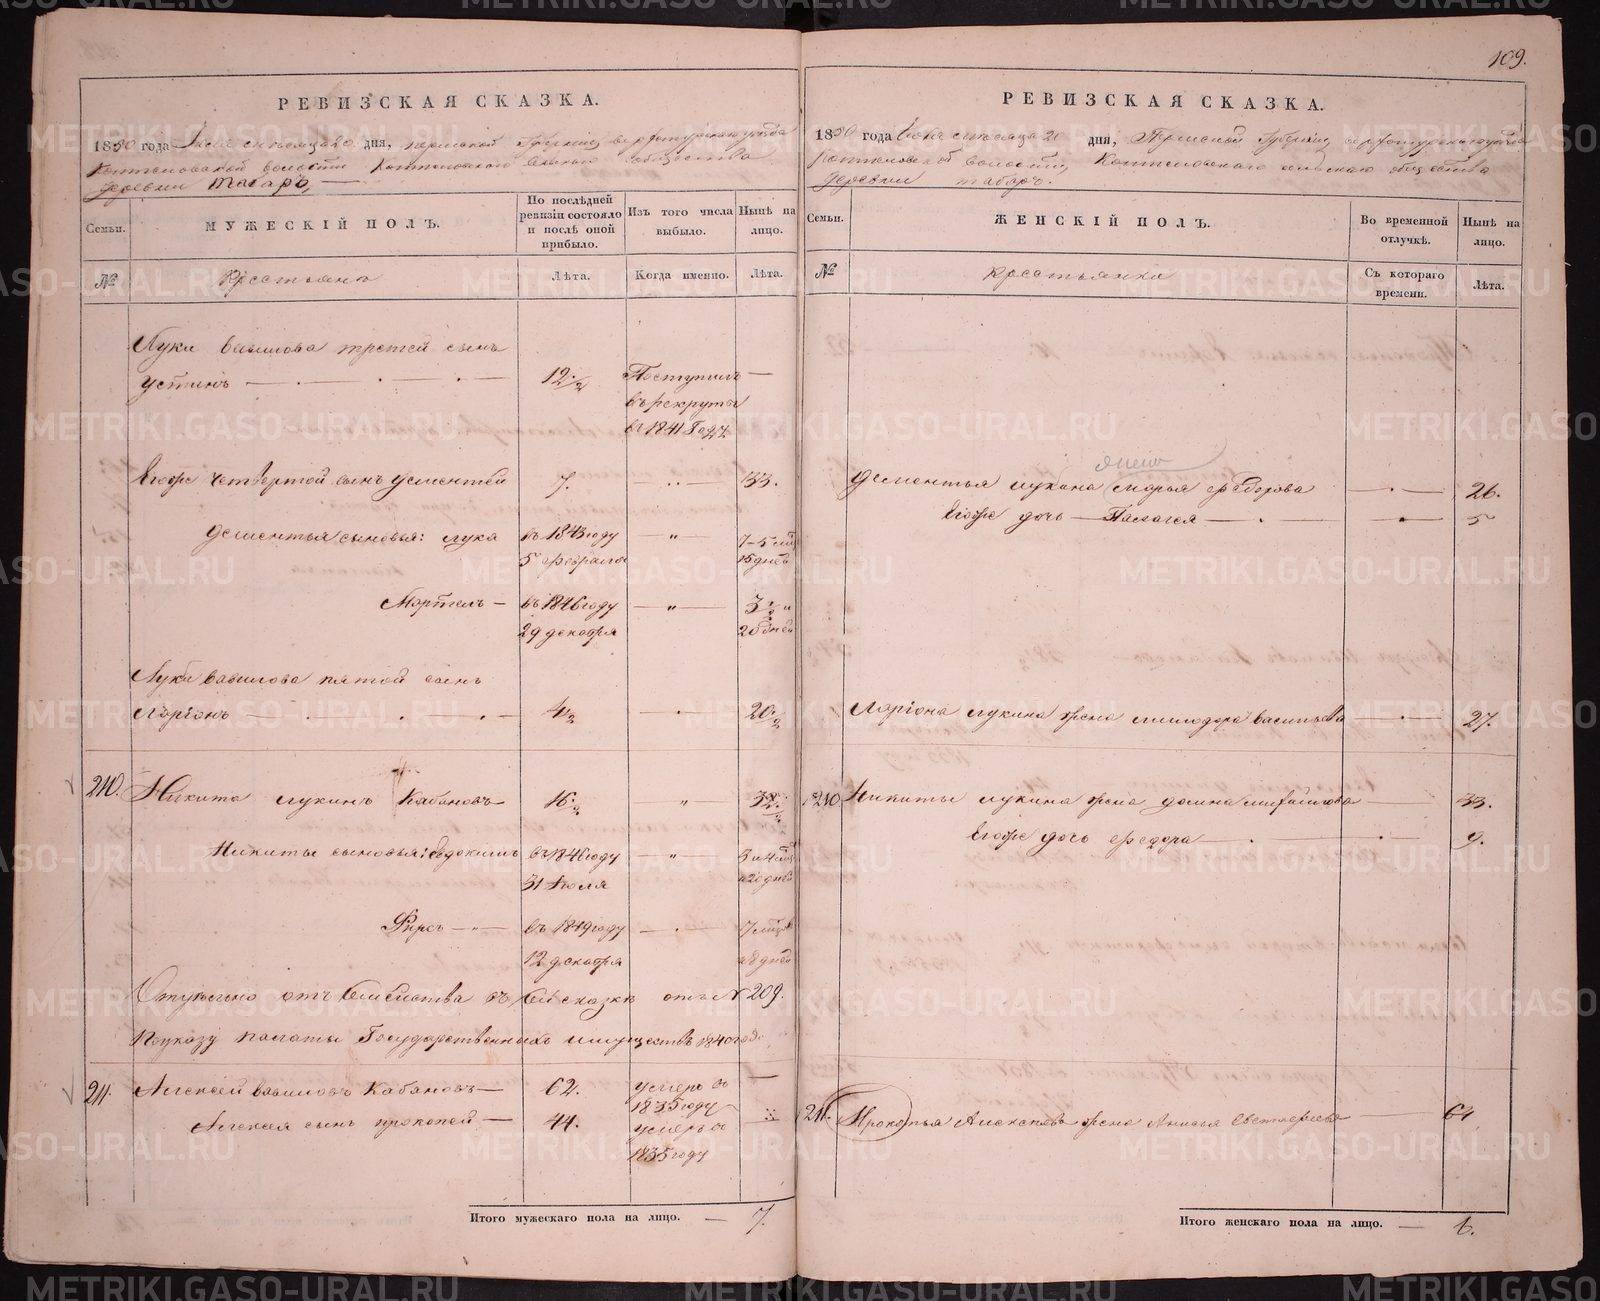 109.
РЕВИЗСКАЯ СКАЗКА.
1850 года Іюля мѣсяца 20 дня, Пермской Губерніи, верхотурскаго уѣзда
Коптеловской волости Коптеловскаго сельскаго общества
деревни Таборъ,
Семьи.
МУЖЕСКІЙ ПОЛЪ.
По послѣдней ревизіи состояло и послѣ оной прибыло.
Изъ того числа выбыло.
Нынѣ на лицо.
№
Крестьянъ
Лѣта.
Когда именно.
Лѣта.
Луки вавилова третей сынъ
устинъ — 12 1/2 Поступилъ —
въ рекруты
въ 1841 году
Егоже четвертой сынъ дементей 7. — 33.
дементья сыновья: лука въ 1843 году — " — 7-5 мц
5 февраля 15 дней
въ 1846 году — " — 3 1/2 и
29 декабря 20 дней
Луки вавилова пятой сынъ
Ларіонъ — 4 1/2 — 20 1/2
210. Никита лукинъ Кабановъ 16 1/2 "
Никиты сыновья: евдокимъ въ 1846 году — " — 3 и 4 мц
31 Іюля и 20 дней
Фирсъ — въ 1849 году — 7 мцовъ
12 декабря и 8 дней
отъ семейства въ сей сказкѣ отъ № 209.
По указу палаты Государственныхъ имуществъ 1840 года
211. Алексей вавиловъ Кабановъ — 62. умеръ въ —
1835 году
Алексея сынъ прокопей — 44. умеръ въ —
1835 году
Итого мужескаго пола на лицо. — 7.
РЕВИЗСКАЯ СКАЗКА.
1850 года Іюля мѣсяца 20 дня, Пермской Губерніи, верхотурскаго уѣзда
Коптеловской волости, Коптеловскаго сельскаго общества
деревни таборъ.
Семьи.
ЖЕНСКІЙ ПОЛЪ.
Во временной отлучкѣ.
Нынѣ на лицо.
№
Крестьянки
Съ котораго времени.
Лѣта.
Дементья лукина марья федорова — 26.
Егоже дочь — Палагея — 5
Ларіона лукина жена минодора васильева — 27.
210 Никиты лукина жена домна михайлова — 33.
Егоже дочь федора — 9.
211. Прокопья Алексѣева жена Анисья — 64
Итого женскаго пола на лицо. — 6.
METRIKI.GASO-URAL.RU